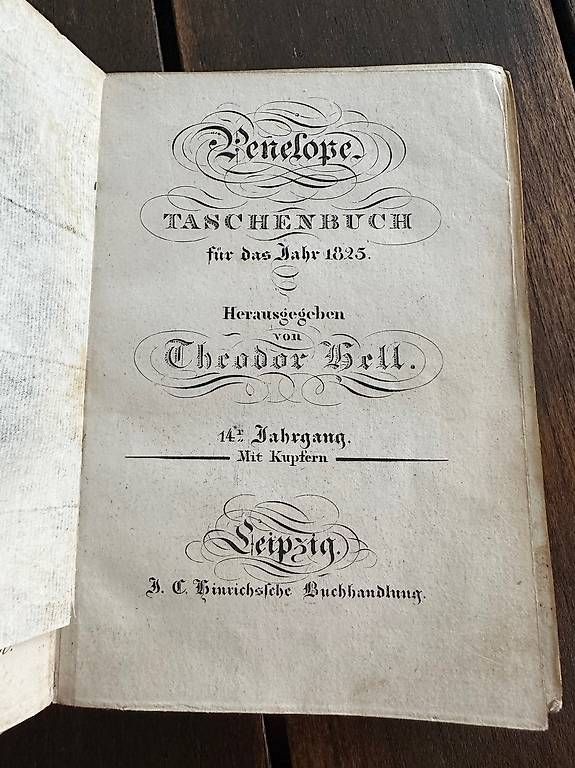 Penelope.
TASCHENBUCH
für das Jahr 1825.
Herausgegeben
von
Theodor Hell.
14r Jahrgang.
Mit Kupfern
Leipzig.
J. C. Hinrichssche Buchhandlung.